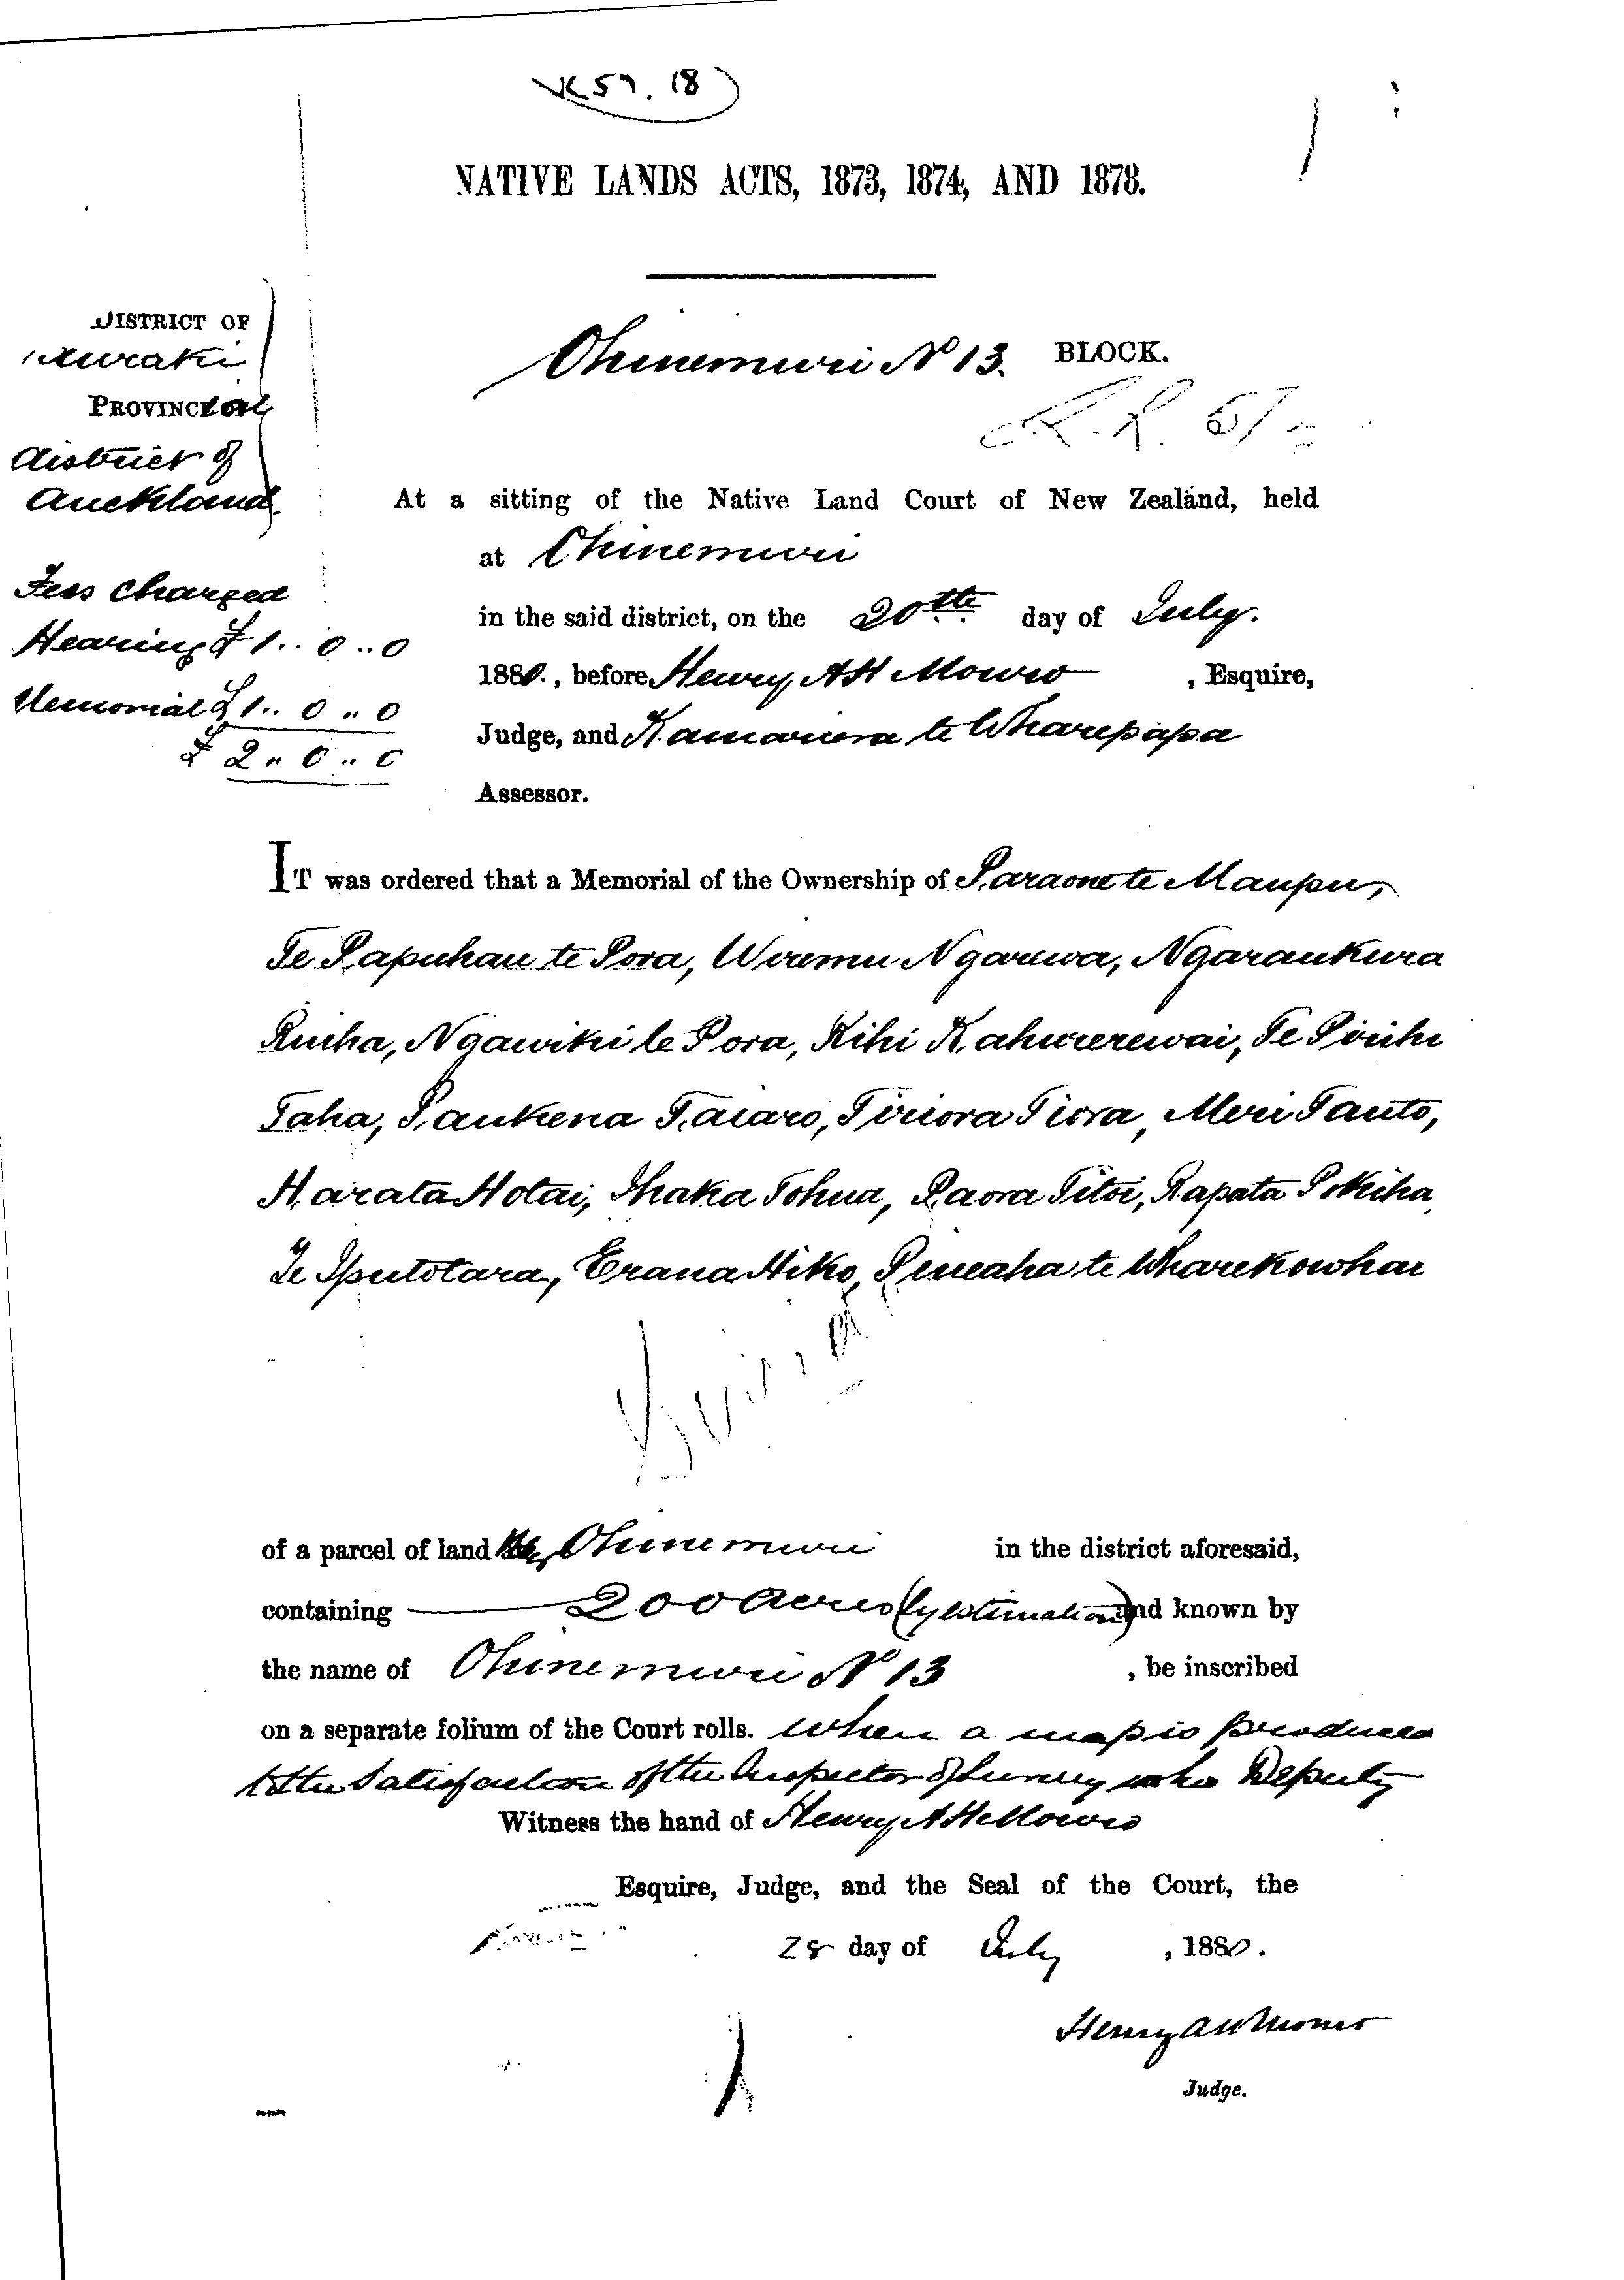 K 57. 18
NATIVE LANDS ACTS, 1873, 1874, AND 1878.
DISTRICT OF
Hauraki
PROVINCIAL
district of
Auckland.
Fees Charged
Hearing £ 1 .. 0 .. 0
Memorial £ 1 .. 0 .. 0
£ 2 .. 0 .. 0
Ohinemuri No 13. BLOCK.
At a sitting of the Native Land Court of New Zealand, held
at Ohinemuri
in the said district, on the 20th day of July.
1880., before Henry A H Monro , Esquire,
Judge, and Kamariera te Wharepapa
Assessor.
IT was ordered that a Memorial of the Ownership of Paraone te Maupu,
Te Papuhau te Pora, Wiremu Ngarewa, Ngaraukura
Ruiha, Ngawiki te Pora, Kihi Kahurerewai, Te Pirihi
Taha, Paukena Taiaro, Tiriora Tiora, Meri Tauto,
Harata Hotai, Ihaka Tohua, Paora Titoi, Rapata Pokiha
Te Iputotara, Erana Hiko, Pineaha te Wharekowhai
of a parcel of land at Ohinemuri in the district aforesaid,
containing 200 Acres (by estimation) and known by
the name of Ohinemuri No 13 , be inscribed
on a separate folium of the Court rolls. When a map is produced
to the Satisfaction of the Inspector of Survey or his Deputy
Witness the hand of Henry A H Monro
Esquire, Judge, and the Seal of the Court, the
28 day of July , 1880.
Henry A H Monro
Judge.